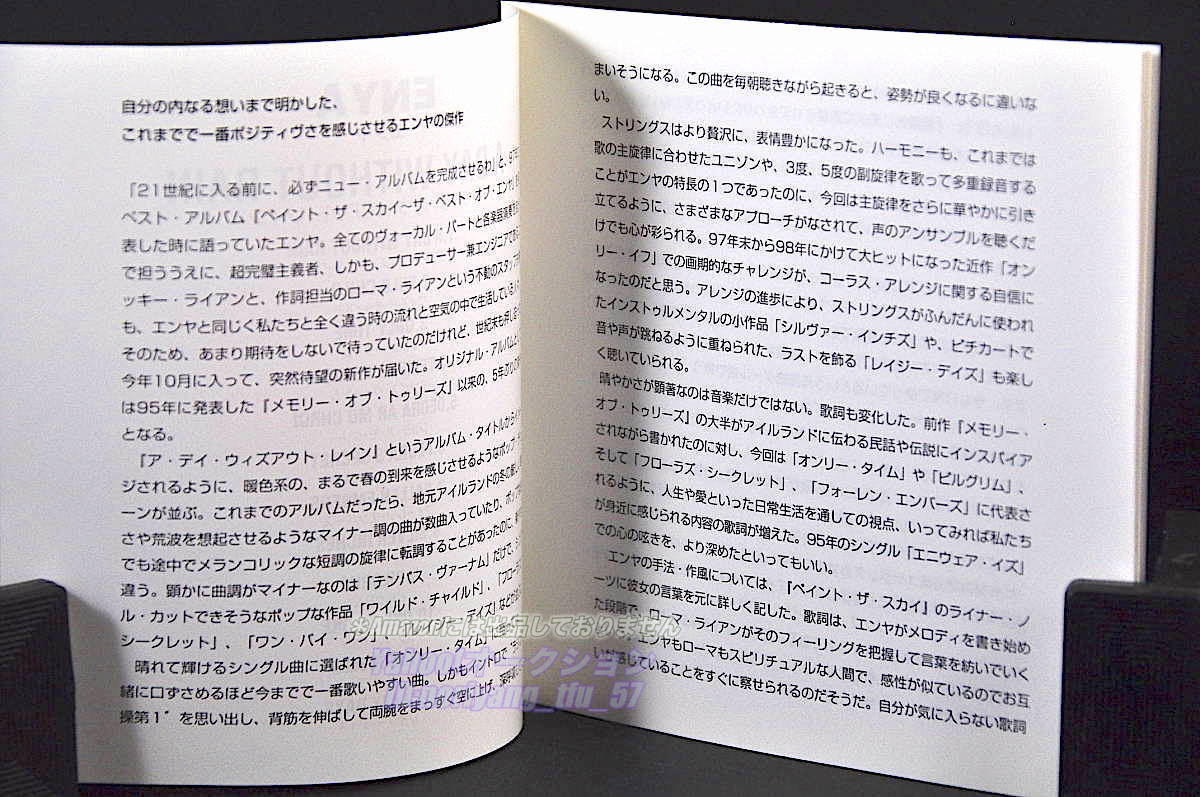 自分の内なる想いまで明かした、
これまでで一番ポジティヴさを感じさせるエンヤの傑作
「21世紀に入る前に、必ずニュー・アルバムを完成させるわ」と、97年
ベスト・アルバム『ペイント・ザ・スカイ〜ザ・ベスト・オブ・エンヤ』
表した時に語っていたエンヤ。全てのヴォーカル・パートと各楽器演奏を
で担ううえに、超完璧主義者、しかも、プロデューサー兼エンジニアで
ッキー・ライアンと、作詞担当のローマ・ライアンという不動のスタッフ
も、エンヤと同じく私たちと全く違う時の流れと空気の中で生活している
そのため、あまり期待をしないで待っていたのだけれど、世紀末も押し
今年10月に入って、突然待望の新作が届いた。オリジナル・アルバムと
は95年に発表した『メモリー・オブ・トゥリーズ』以来の、5年ぶりの
となる。
『ア・デイ・ウィズアウト・レイン』というアルバム・タイトルから
ジされるように、暖色系の、まるで春の到来を感じさせるようなポップ・
ーンが並ぶ。これまでのアルバムだったら、地元アイルランドの冬の厳し
さや荒波を想起させるようなマイナー調の曲が数曲入っていたり、ポップ
でも途中でメランコリックな短調の旋律に転調することがあったのに、
違う。顕かに曲調がマイナーなのは「テンパス・ヴァーナム」だけで、
ル・カットできそうなポップな作品「ワイルド・チャイルド」、「フロー
シークレット」、「ワン・バイ・ワン」、「レイジー・デイズ」などの
晴れて輝けるシングル曲に選ばれた「オンリー・タイム」は
緒に口ずさめるほど今までで一番歌いやすい曲。しかもイントロで
操第1〟を思い出し、背筋を伸ばして両腕をまっすぐ空に上げ、深呼
まいそうになる。この曲を毎朝聴きながら起きると、姿勢が良くなるに違いな
い。
ストリングスはより贅沢に、表情豊かになった。ハーモニーも、これまでは
歌の主旋律に合わせたユニゾンや、3度、5度の副旋律を歌って多重録音する
ことがエンヤの特長の1つであったのに、今回は主旋律をさらに華やかに引き
立てるように、さまざまなアプローチがなされて、声のアンサンブルを聴くだ
けでも心が彩られる。97年末から98年にかけて大ヒットになった近作「オン
リー・イフ」での画期的なチャレンジが、コーラス・アレンジに関する自信に
なったのだと思う。アレンジの進歩により、ストリングスがふんだんに使われ
たインストゥルメンタルの小作品「シルヴァー・インチズ」や、ピチカートで
音や声が跳ねるように重ねられた、ラストを飾る「レイジー・デイズ」も楽し
く聴いていられる。
晴やかさが顕著なのは音楽だけではない。歌詞も変化した。前作『メモリー・
オブ・トゥリーズ』の大半がアイルランドに伝わる民話や伝説にインスパイア
されながら書かれたのに対し、今回は「オンリー・タイム」や「ピルグリム」、
そして「フローラズ・シークレット」、「フォーレン・エンバーズ」に代表さ
れるように、人生や愛といった日常生活を通しての視点、いってみれば私たち
が身近に感じられる内容の歌詞が増えた。95年のシングル「エニウェア・イズ」
での心の呟きを、より深めたといってもいい。
エンヤの手法・作風については、『ペイント・ザ・スカイ』のライナー・ノ
ーツに彼女の言葉を元に詳しく記した。歌詞は、エンヤがメロディを書き始め
た段階で、ローマ・ライアンがそのフィーリングを把握して言葉を紡いでいく
エンヤもローマもスピリチュアルな人間で、感性が似ているのでお互
いが感じていることをすぐに察せられるのだそうだ。自分が気に入らない歌詞
※Amazonには出品しておりません
Yahoo!オークション